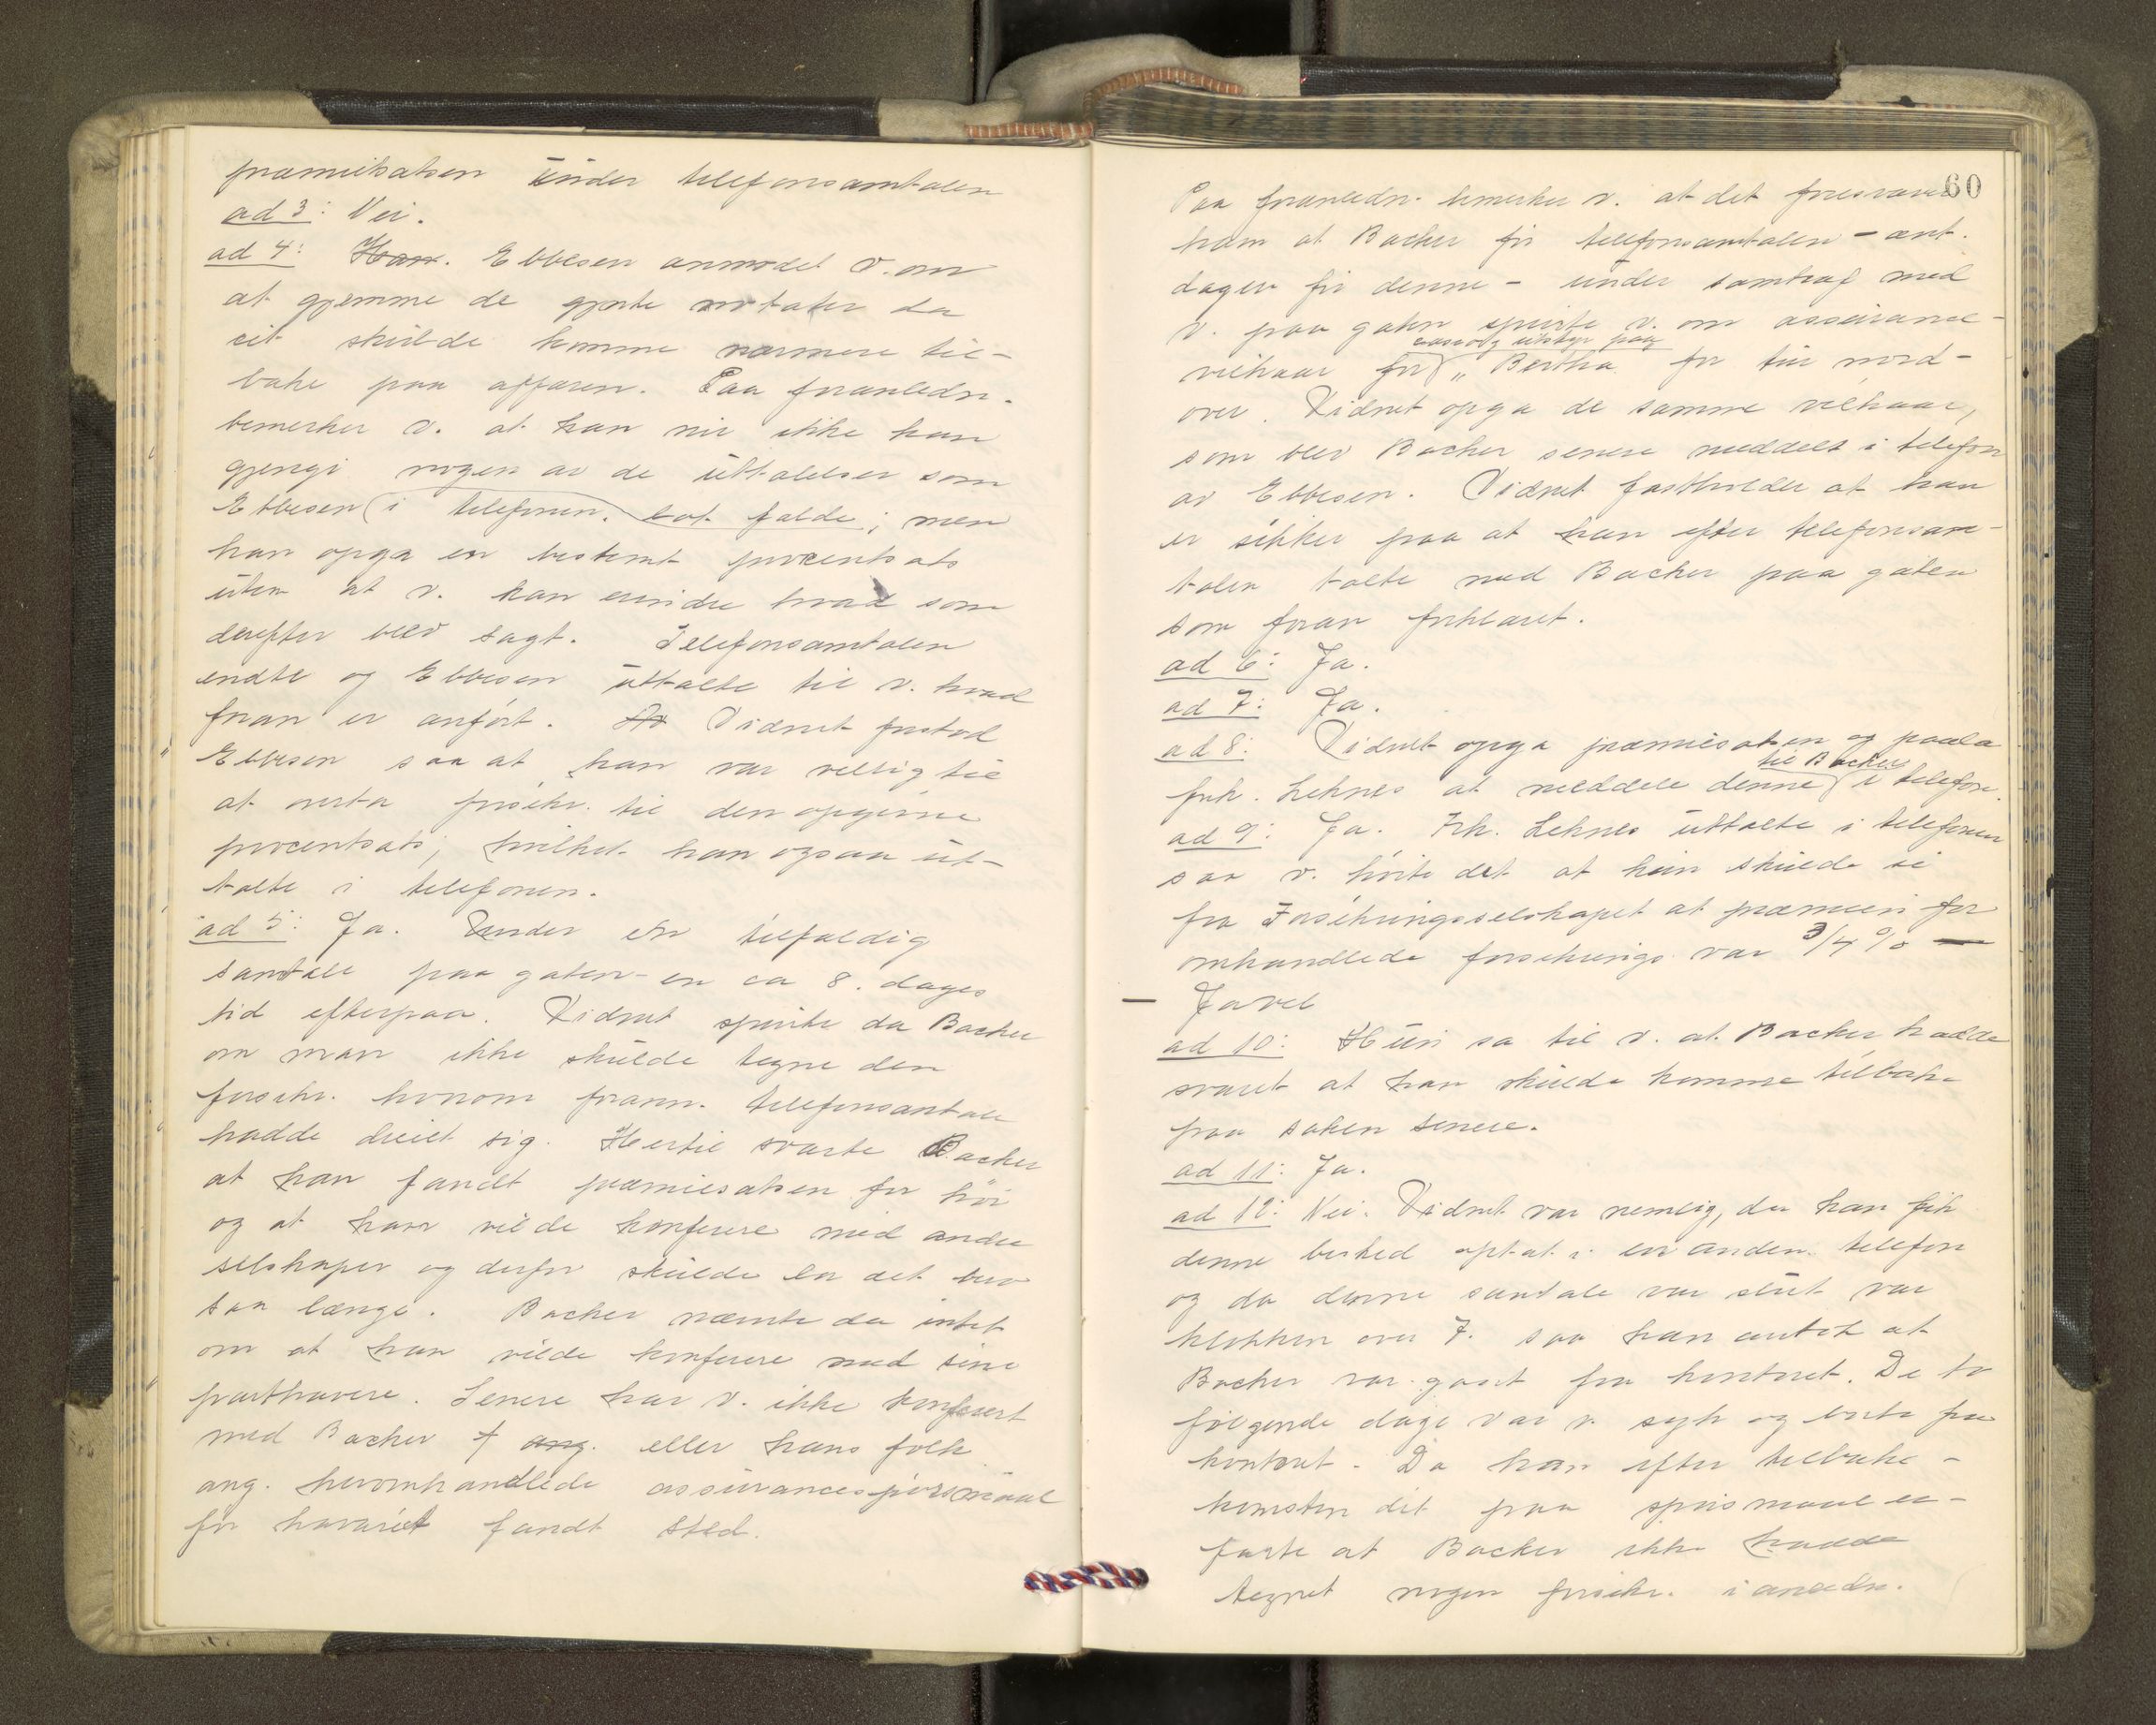 præmiesatsen under telefonsamtalen
ad 3: Nei.
ad 4: Han. Ebbesen anmodet v. om
at gjemme de gjorte notater da
vit skulde komme nærmere til-
bake paa affæren. Paa foranledn.
bemerker v. at han nu ikke kan
gjengi nogen av de uttalelser som
Ebbesen i telefonen lot falde; men
han opga en bestemt procentsats
uten at v. kan erindre hvad som
derefter blev sagt. Telefonsamtalen
endte og Ebbesen uttalte til v. hvad
foran er anført. Av Vidnet forstod
" Ebbesen saa at han var villig til
at overta forsikr. til den opgivne
procentsats, hvilket han ogsaa ut-
talte i telefonen.
ad 5: Ja. Under en tilfældig
samtale paa gaten - en ca 8. dages
tid efterpaa. Vidnet spurte da Backer
om man ikke skulde tegne den
forsikr. hvorom foran. telefonsamtale
hadde dreiet sig. Hertil svarte Backer
at han fandt præmiesatsen for høi
og at han vilde konferere med andre
selskaper og derfor skulde la det bero
saa længe. Backer nævnte da intet
om at han vilde konferere med sine
parthavere. Senere har v. ikke konferert
med Backer f ang. eller hans folk
ang. heromhandlede assurancespørsmaal
før havariet fandt sted.
60
Paa foranledn. bemerker v. at det foresvæver
ham at Backer før telefonsamtalen - ant.
dagen før denne - under samtraf med
v. paa gaten spurte v. om assurance-
casco og utstyr paa
vilkaar for " Bertha for tur nord-
over. Vidnet opga de samme vilkaar,
som blev Backer senere meddelt i telefon
av Ebbesen. Vidnet fastholder at han
er sikker paa at han efter telefonsam-
talen talte med Backer paa gaten
som foran forklaret.
ad 6: Ja.
ad 7: Ja.
ad 8: Vidnet opga præmiesatsen og paala
til Backer
frk. Leknes at meddele denne i telefon.
ad 9: Ja. Frk. Leknes uttalte i telefonen
saa v. hørte det at hun skulde si
fra Forsikringsselskapet at præmien for
omhandlede forsikrings var 3/4 % —
— Javel
ad 10: Hun sa til v. at Backer hadde
svaret at han skulde komme tilbake
paa saken senere.
ad 11: Ja.
ad 12: Nei. Vidnet var nemlig, da han fik
denne besked optat i en anden telefon
og da denne samtale var slut var
klokken over 7. saa han antok at
Backer var gaat fra kontoret. De to
følgende dage var v. syk og borte fra
kontoret. Da han efter tilbake-
komsten dit paa spørsmaal er-
farte at Backer ikke hadde
tegnet nogen forsikr. i anledn.